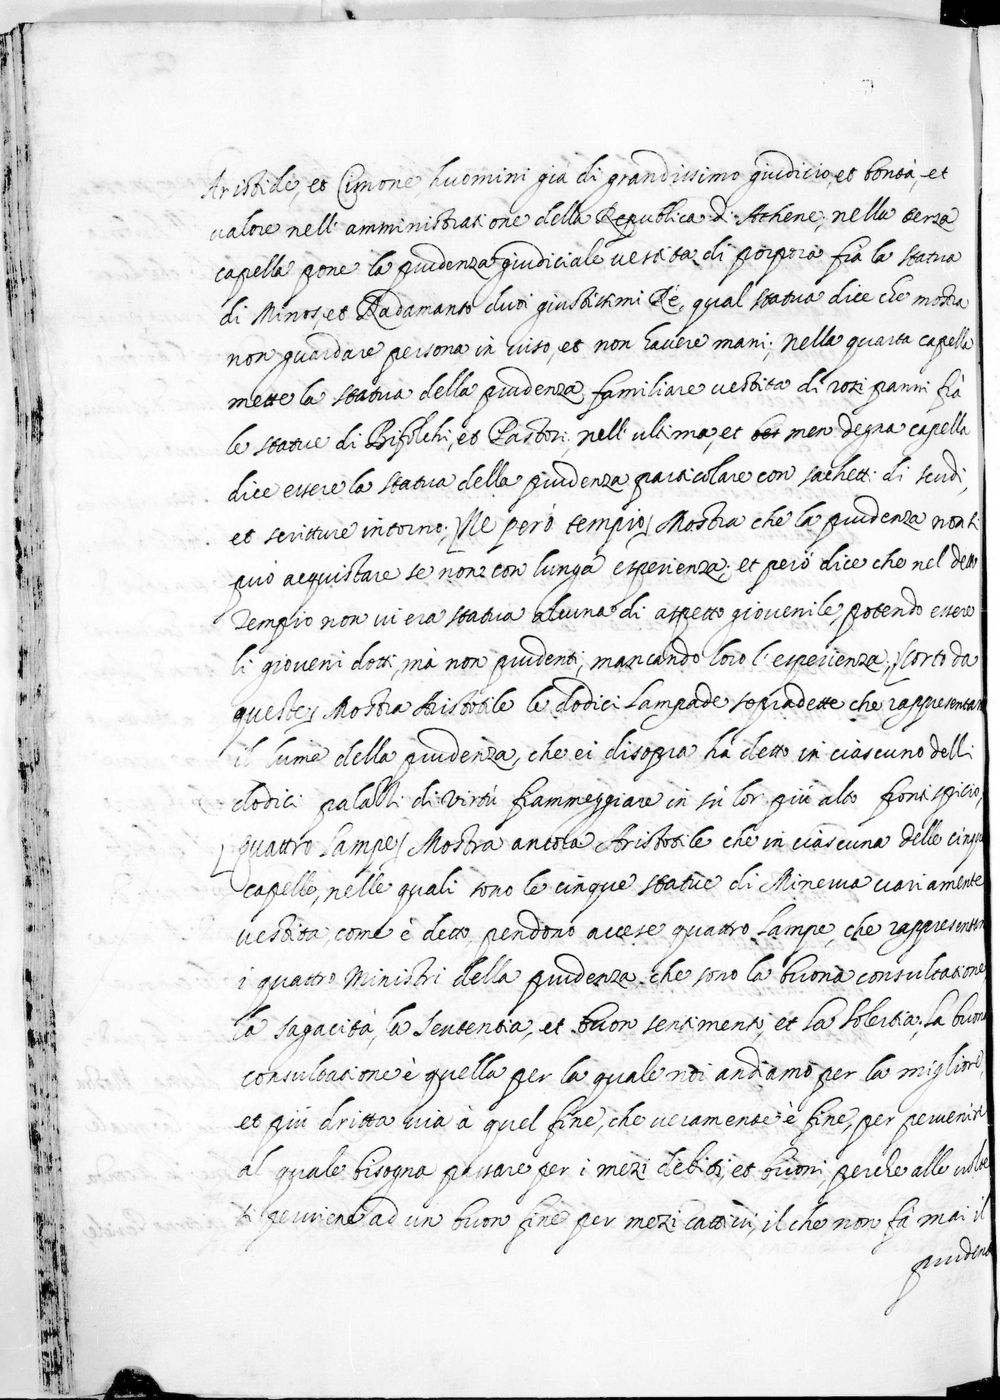 Aristide, et Cimone huomini già di grandissimo giudicio, et bontà, et
valore nell'amministratione della Republica di Athene; nella terza
capella pone la prudenza giudiciale vestita di porpora frà la statua
di Minos, et Radamanto duoi giustissimi Rè, qual statua dice che mostra
non guardare persona in viso, et non havere mani; Nella quarta capella
mette la statua della prudenza familiare vestita di rozi panni frà
le statue di Bifolchi, et Pastori, nell'ultima, et men degna capella
dice essere la statua della prudenza particolare con sachetti di scudi,
et scritture intorno; Ne però tempio) Mostra che la prudenza non si
può acquistare se non con lunga esperienza; et però dice che nel detto
Tempio non vi era statua alcuna di aspetto giovenile, potendo essere
li gioveni dotti, mà non prudenti, mancando loro l'esperienza; Scorto da
queste) Mostra Aristotile le dodici Lampade sopradette che rappresentan
il lume della prudenza, che ei disopra hà detto in ciascuno delli
dodici palazzi di virtù fiammeggiare in sù lor più alto frontispicio,
Quattro Lampe) Mostra ancora Aristotile che in ciascuna delle cinque
capelle, nelle quali sono le cinque statue di Minerva variamente
vestita, come è detto, pendono accese quattro Lampe, che rappresentan
i quattro Ministri della prudenza che sono la buona consultatione,
la sagacità, la Sententia, et buon sentimento, et la Solertia; La buona
consultatione è quella per la quale noi andiamo per la migliore,
et più dritta via à quel fine, che veramente è fine, per pervenire
al quale bisogna passare per i mezi debiti, et buoni, perche alle volte
si perviene ad un buon fine per mezi cattivi, il che non fà mai il
prudente